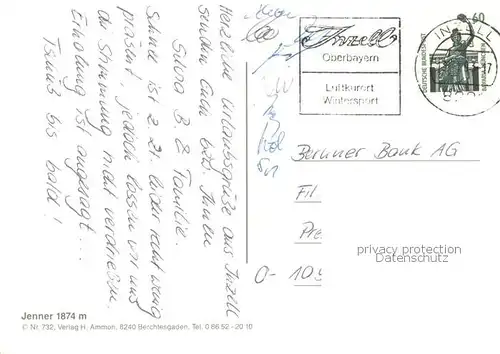 Herzliche Urlaubsgrüße aus Inzell
senden Euch bzw. Ihnen
Silvia B. & Familie.
Schnee ist z. Zt. leider recht wenig
präsent, jedoch lassen wir uns
die Stimmung nicht verdriesen.
Erholung ist angesagt...
Tschüß bis bald!
Jenner 1874 m
© Nr. 732, Verlag H. Ammon, 8240 Berchtesgaden, Tel. 0 86 52 - 20 10
Inzell
Oberbayern
Luftkurort
Wintersport
60
DEUTSCHE BUNDESPOST
INZELL
Berliner Bank AG
Fil
Pre
O- 109
privacy protection
Datenschutz